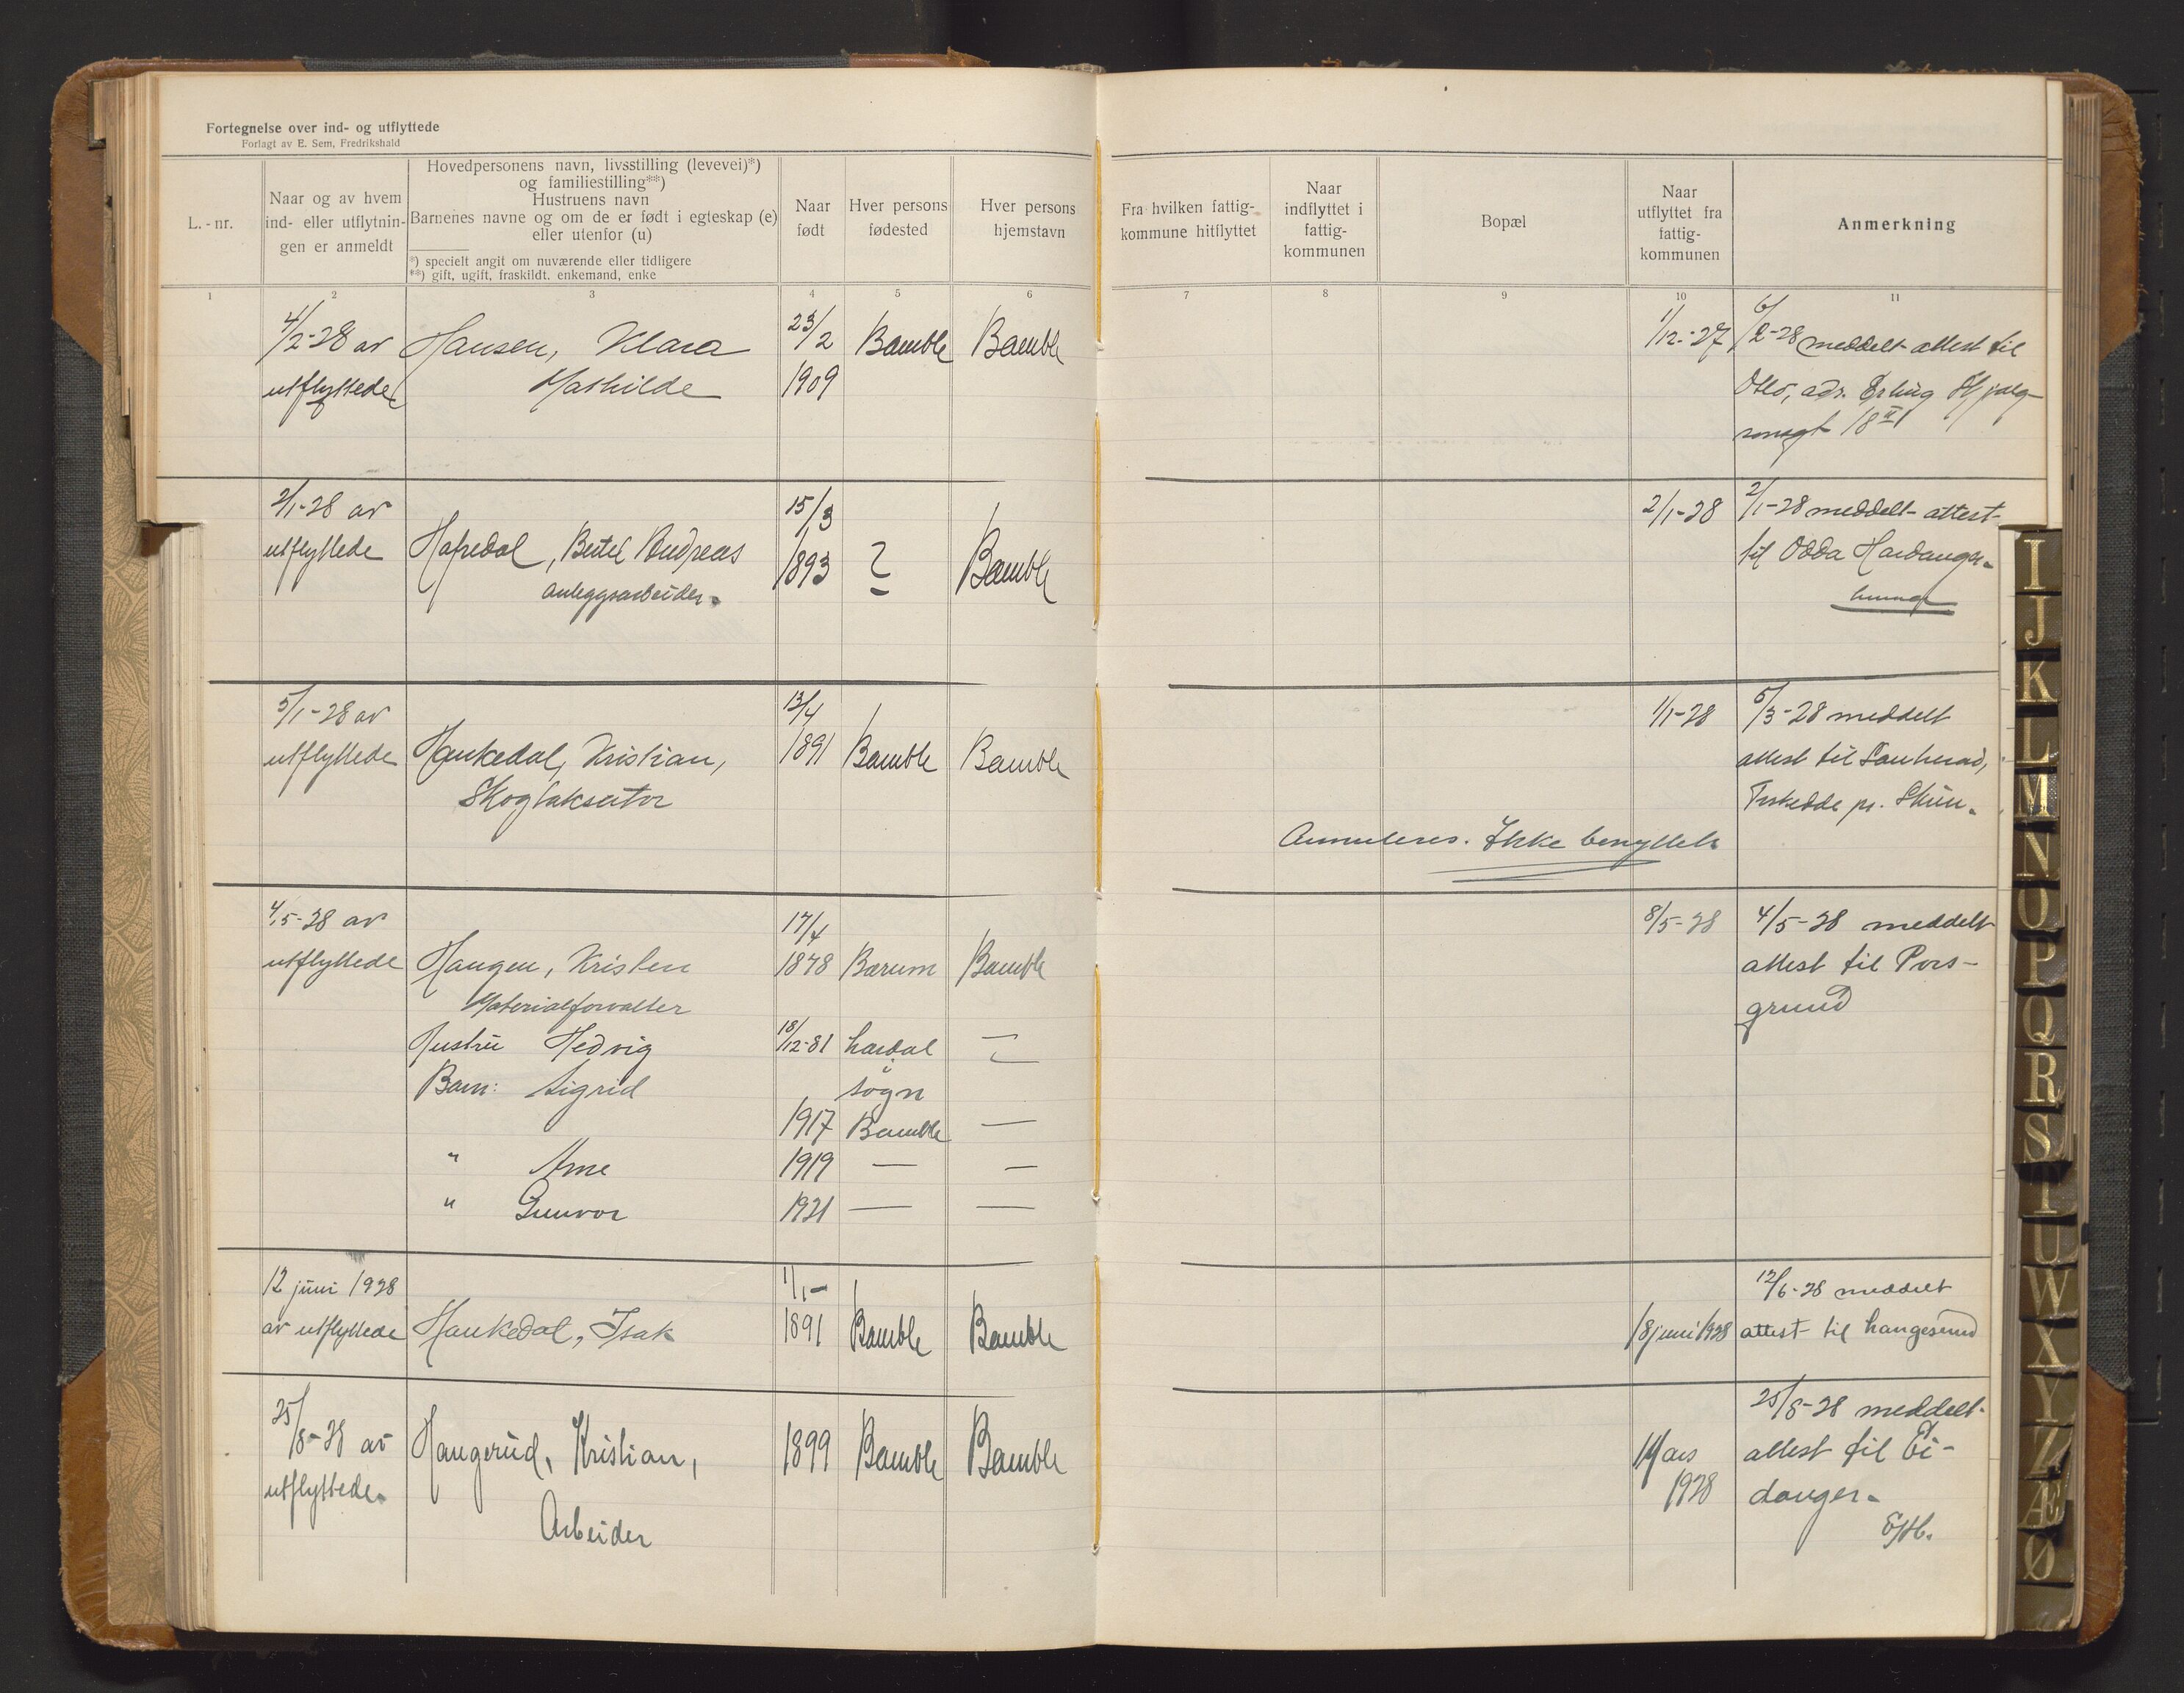 Fortegnelse over ind- og utflyttede
Forlagt av E. Sem, Fredrikshald
L.-nr.
Naar og av hvem
ind- eller utflytnin-
gen er anmeldt
Hovedpersonens navn, livsstilling (levevei)*)
og familiestilling**)
Hustruens navn
Barnenes navne og om de er født i egteskap (e)
eller utenfor (u)
*) specielt angit om nuværende eller tidligere
**) gift, ugift, fraskildt. enkemand, enke
Naar
født
Hver persons
fødested
Hver persons
hjemstavn
Fra hvilken fattig-
kommune hitflyttet
Naar
indflyttet i
fattig-
kommunen
Bopæl
Naar
utflyttet fra
fattig-
kommunen
Anmerkning
1 2 3 4 5 6 7 8 9 10 11
4/2-28 av Hansen, Klara 23/2 Bamble Bamble 1/12-27 6/2-28 meddelt attest til
utflyttede Mathilde 1909 Oslo, adr. Erling Skjalg-
sonsgt 18 II
2/1-28 av 15/3 2/1-28 2/1-28 meddelt attest
utflyttede Hafredal, Bertel Andreas 1893 ? Bamble til Odda Hardanger
anleggsarbeider.
5/1-28 av 13/4 1/1-28 5/3-28 meddelt
utflyttede Haukedal, Kristian, 1891 Bamble Bamble attest til Sauherad,
Skogtaksator pr. Skien.
Annuleres. Ikke benyttet
4/5-28 av 17/4 8/5-28 4/5-28 meddelt
utflyttede Haugen, Kristen 1878 Bærum Bamble attest til Pors-
Materialforvalter grund
Hustru Hedvig 18/12-81 Lærdal —
Barn: Sigrid i Sogn
1917 Bamble —
" Arne 1919 — —
" Gunvor 1921 — —
12 juni 1928 1/1- 12/6-28 meddelt
av utflyttede Haukedal, Isak 1891 Bamble Bamble 18 juni 1928 attest til Langesund
25/8-28 av Haugerud, Kristian, 1899 Bamble Bamble Mars 25/8-28 meddelt
utflyttede. 1928 attest til Ei-
Arbeider danger.
I
J
K
L
M
N
O
P
Q
R
S
T
U
W
X
Y
Z
Æ
Ø